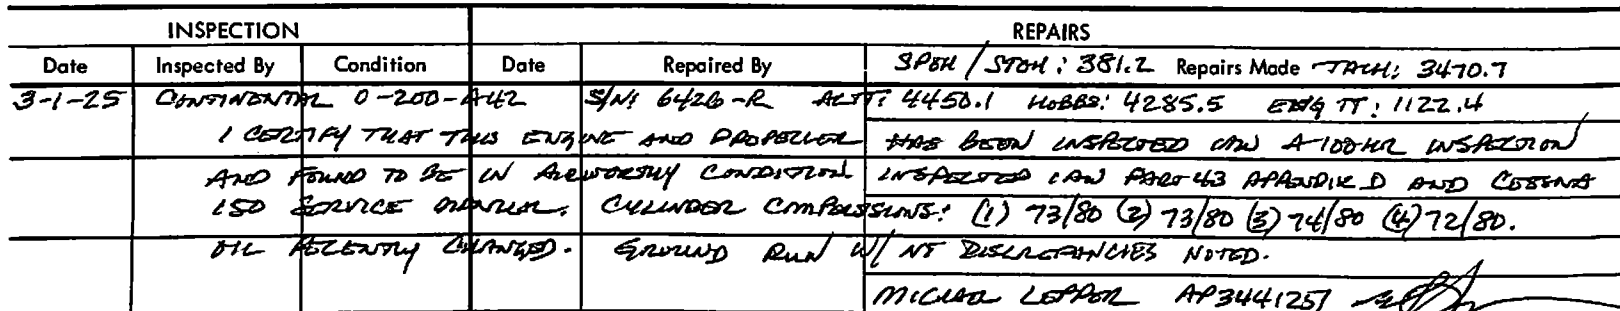 INSPECTION REPAIRS
Date Inspected By Condition Date Repaired By SPOH / STOH: 381.2 Repairs Made TACH: 3470.7
3-1-25 CONTINENTAL O-200-A42 S/N: 6426-R ACTT: 4450.1 HOBBS: 4285.5 ENG TT: 1122.4
I CERTIFY THAT THIS ENGINE AND PROPELLER HAS BEEN INSPECTED IAW A 100HR INSPECTION
AND FOUND TO BE IN AIRWORTHY CONDITION INSPECTED IAW PART 43 APPENDIX D AND CESSNA
150 SERVICE MANUAL. CYLINDER COMPRESSIONS: (1) 73/80 (2) 73/80 (3) 74/80 (4) 72/80.
OIL RECENTLY CHANGED. GROUND RUN W/ NO DISCREPANCIES NOTED.
MICHAEL AP3441257